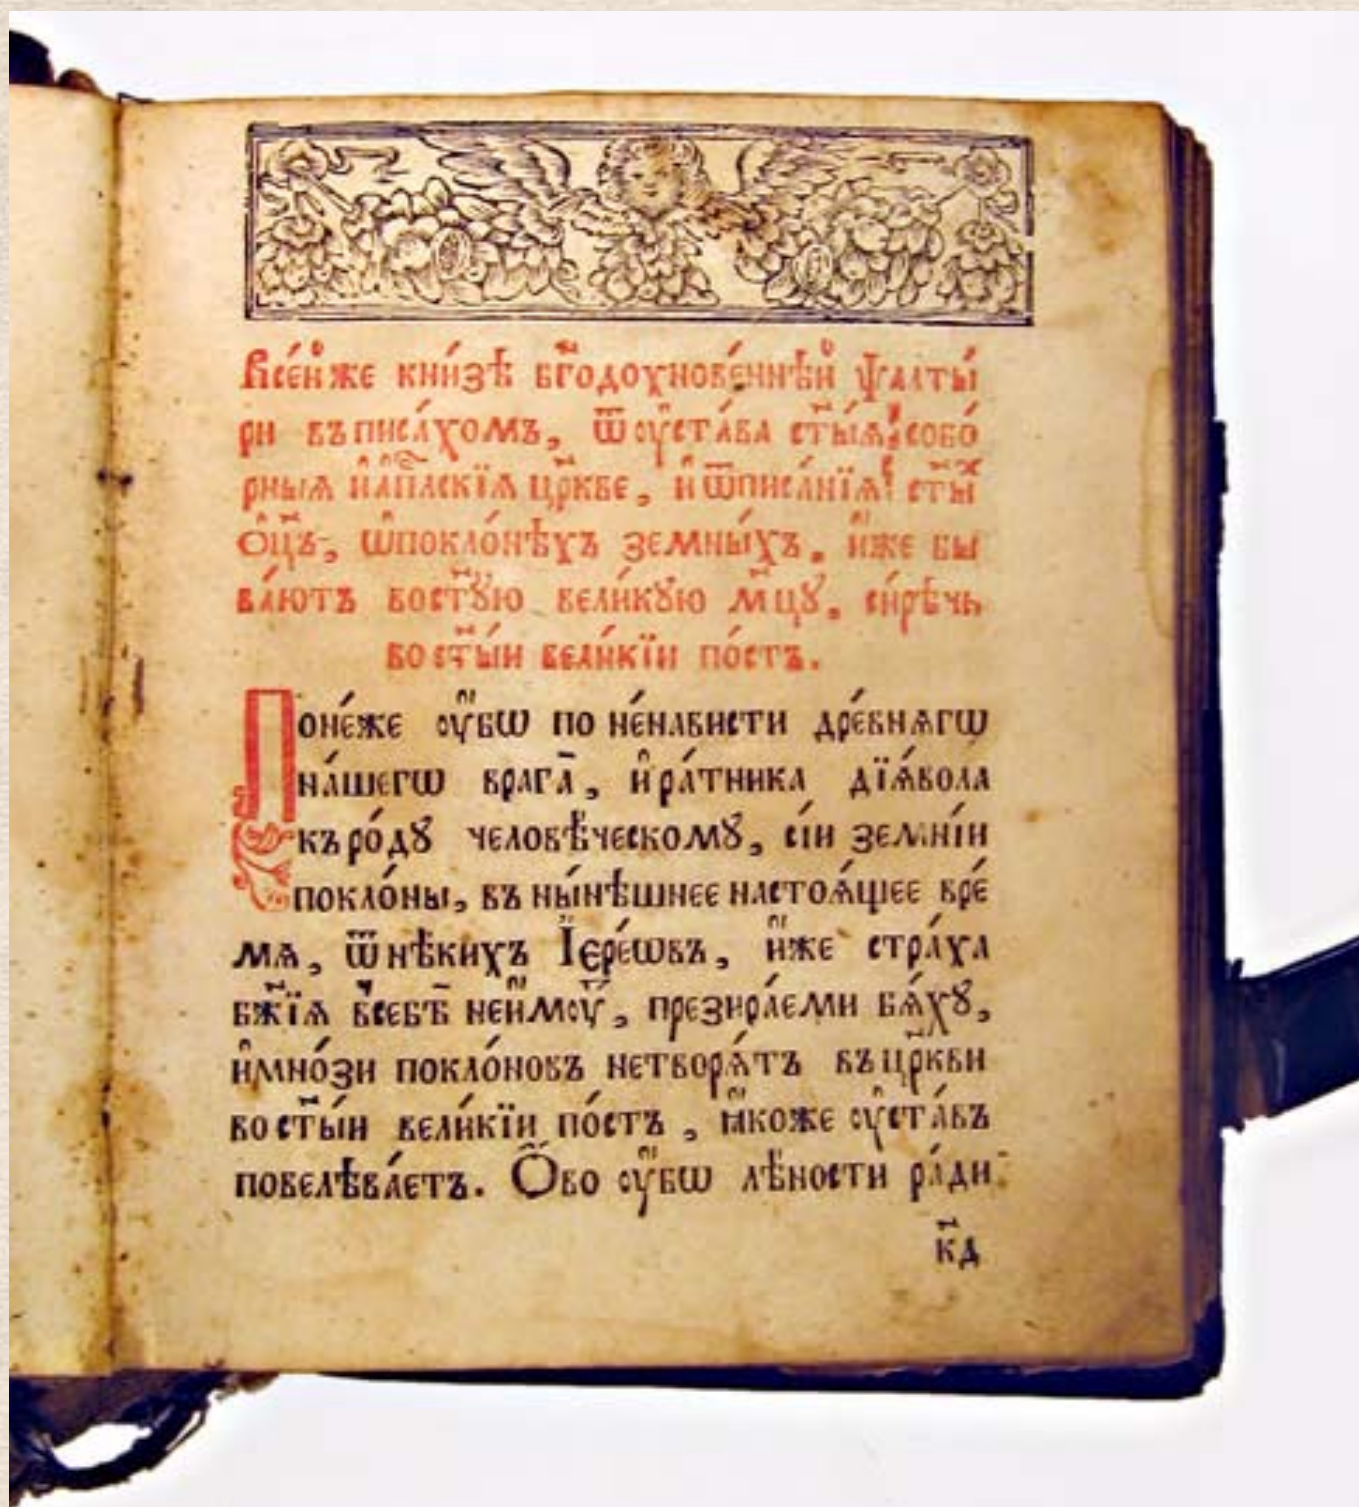 Всéй же кни́зѣ бг҃одохнове́ннѣй ѱалты́
ри въписа́хомъ, ѿ оу҆ста́ва ст҃ы́ѧ собо́
рныѧ и҆ а҆п҇лскїѧ цр҃кве, и҆ ѿ писа́нїѧ ст҃ы́х
ѻ҆ц҃ъ, ѡ҆ покло́нѣхъ земны́хъ. и҆́же бы
ва́ютъ во ст҃ꙋ́ю вели́кꙋю м҃цꙋ, си́рѣчь
во ст҃ы́и вели́кїи по́стъ.
Поне́же оу҆́бѡ по не́нависти дре́внѧгѡ
на́шегѡ врага̀, и҆ ра́тника дїѧ́вола
къ ро́дꙋ человѣ́ческомꙋ, сі́и земні́и
покло́ны, въ ны́нѣшнее настоѧ́щее вре́
мѧ, ѿ нѣ́кихъ І҆ере́ѡвъ, и҆́же стра́ха
бж҃їѧ в себѣ̀ не и҆́моу҆́, презира́еми бѧ́хꙋ,
и҆ мно́зи покло́новъ не творѧ́тъ въ цр҃кви
во ст҃ы́и вели́кїи по́стъ, ꙗ҆́коже оу҆ста́въ
повелѣва́етъ. Ѻ҆́во оу҆́бѡ лѣ́ности ра́ди
к҃д